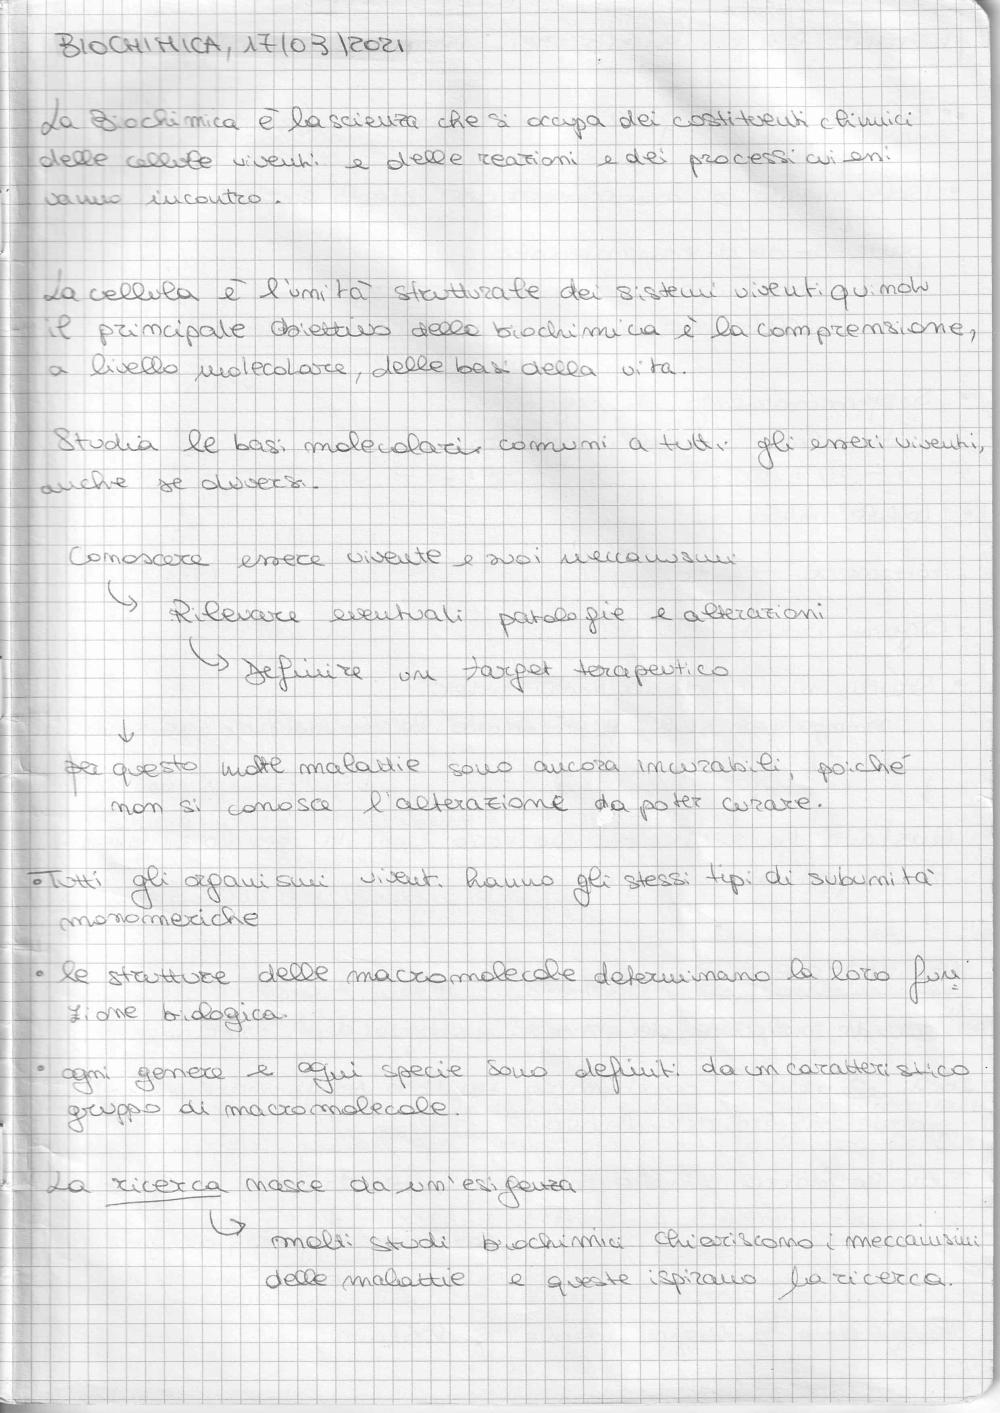 BIOCHIMICA, 17/03/2021
La Biochimica è la scienza che si occupa dei costituenti chimici
delle cellule viventi e delle reazioni e dei processi cui essi
vanno incontro.
La cellula è l'unità strutturale dei sistemi viventi quindi
il principale obiettivo della biochimica è la comprensione,
a livello molecolare, delle basi della vita.
Studia le basi molecolari comuni a tutti gli esseri viventi,
anche se diversi.
Conoscere essere vivente e suoi meccanismi
↳ Rilevare eventuali patologie e alterazioni
↳ Definire un target terapeutico
↓
per questo molte malattie sono ancora incurabili, poiché
non si conosce l'alterazione da poter curare.
• Tutti gli organismi viventi hanno gli stessi tipi di subunità
monomeriche
• le strutture delle macromolecole determinano la loro fun
zione biologica.
• ogni genere e ogni specie sono definiti da un caratteristico
gruppo di macromolecole.
La ricerca nasce da un'esigenza
↳ molti studi biochimici chiariscono i meccanismi
delle malattie e queste ispirano la ricerca.